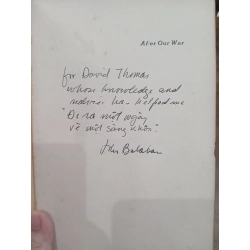 After Our War
for David Thomas
whose knowledge and
advice has helped me
"Đi ra một ngày
về một sàng khôn."
John Balaban